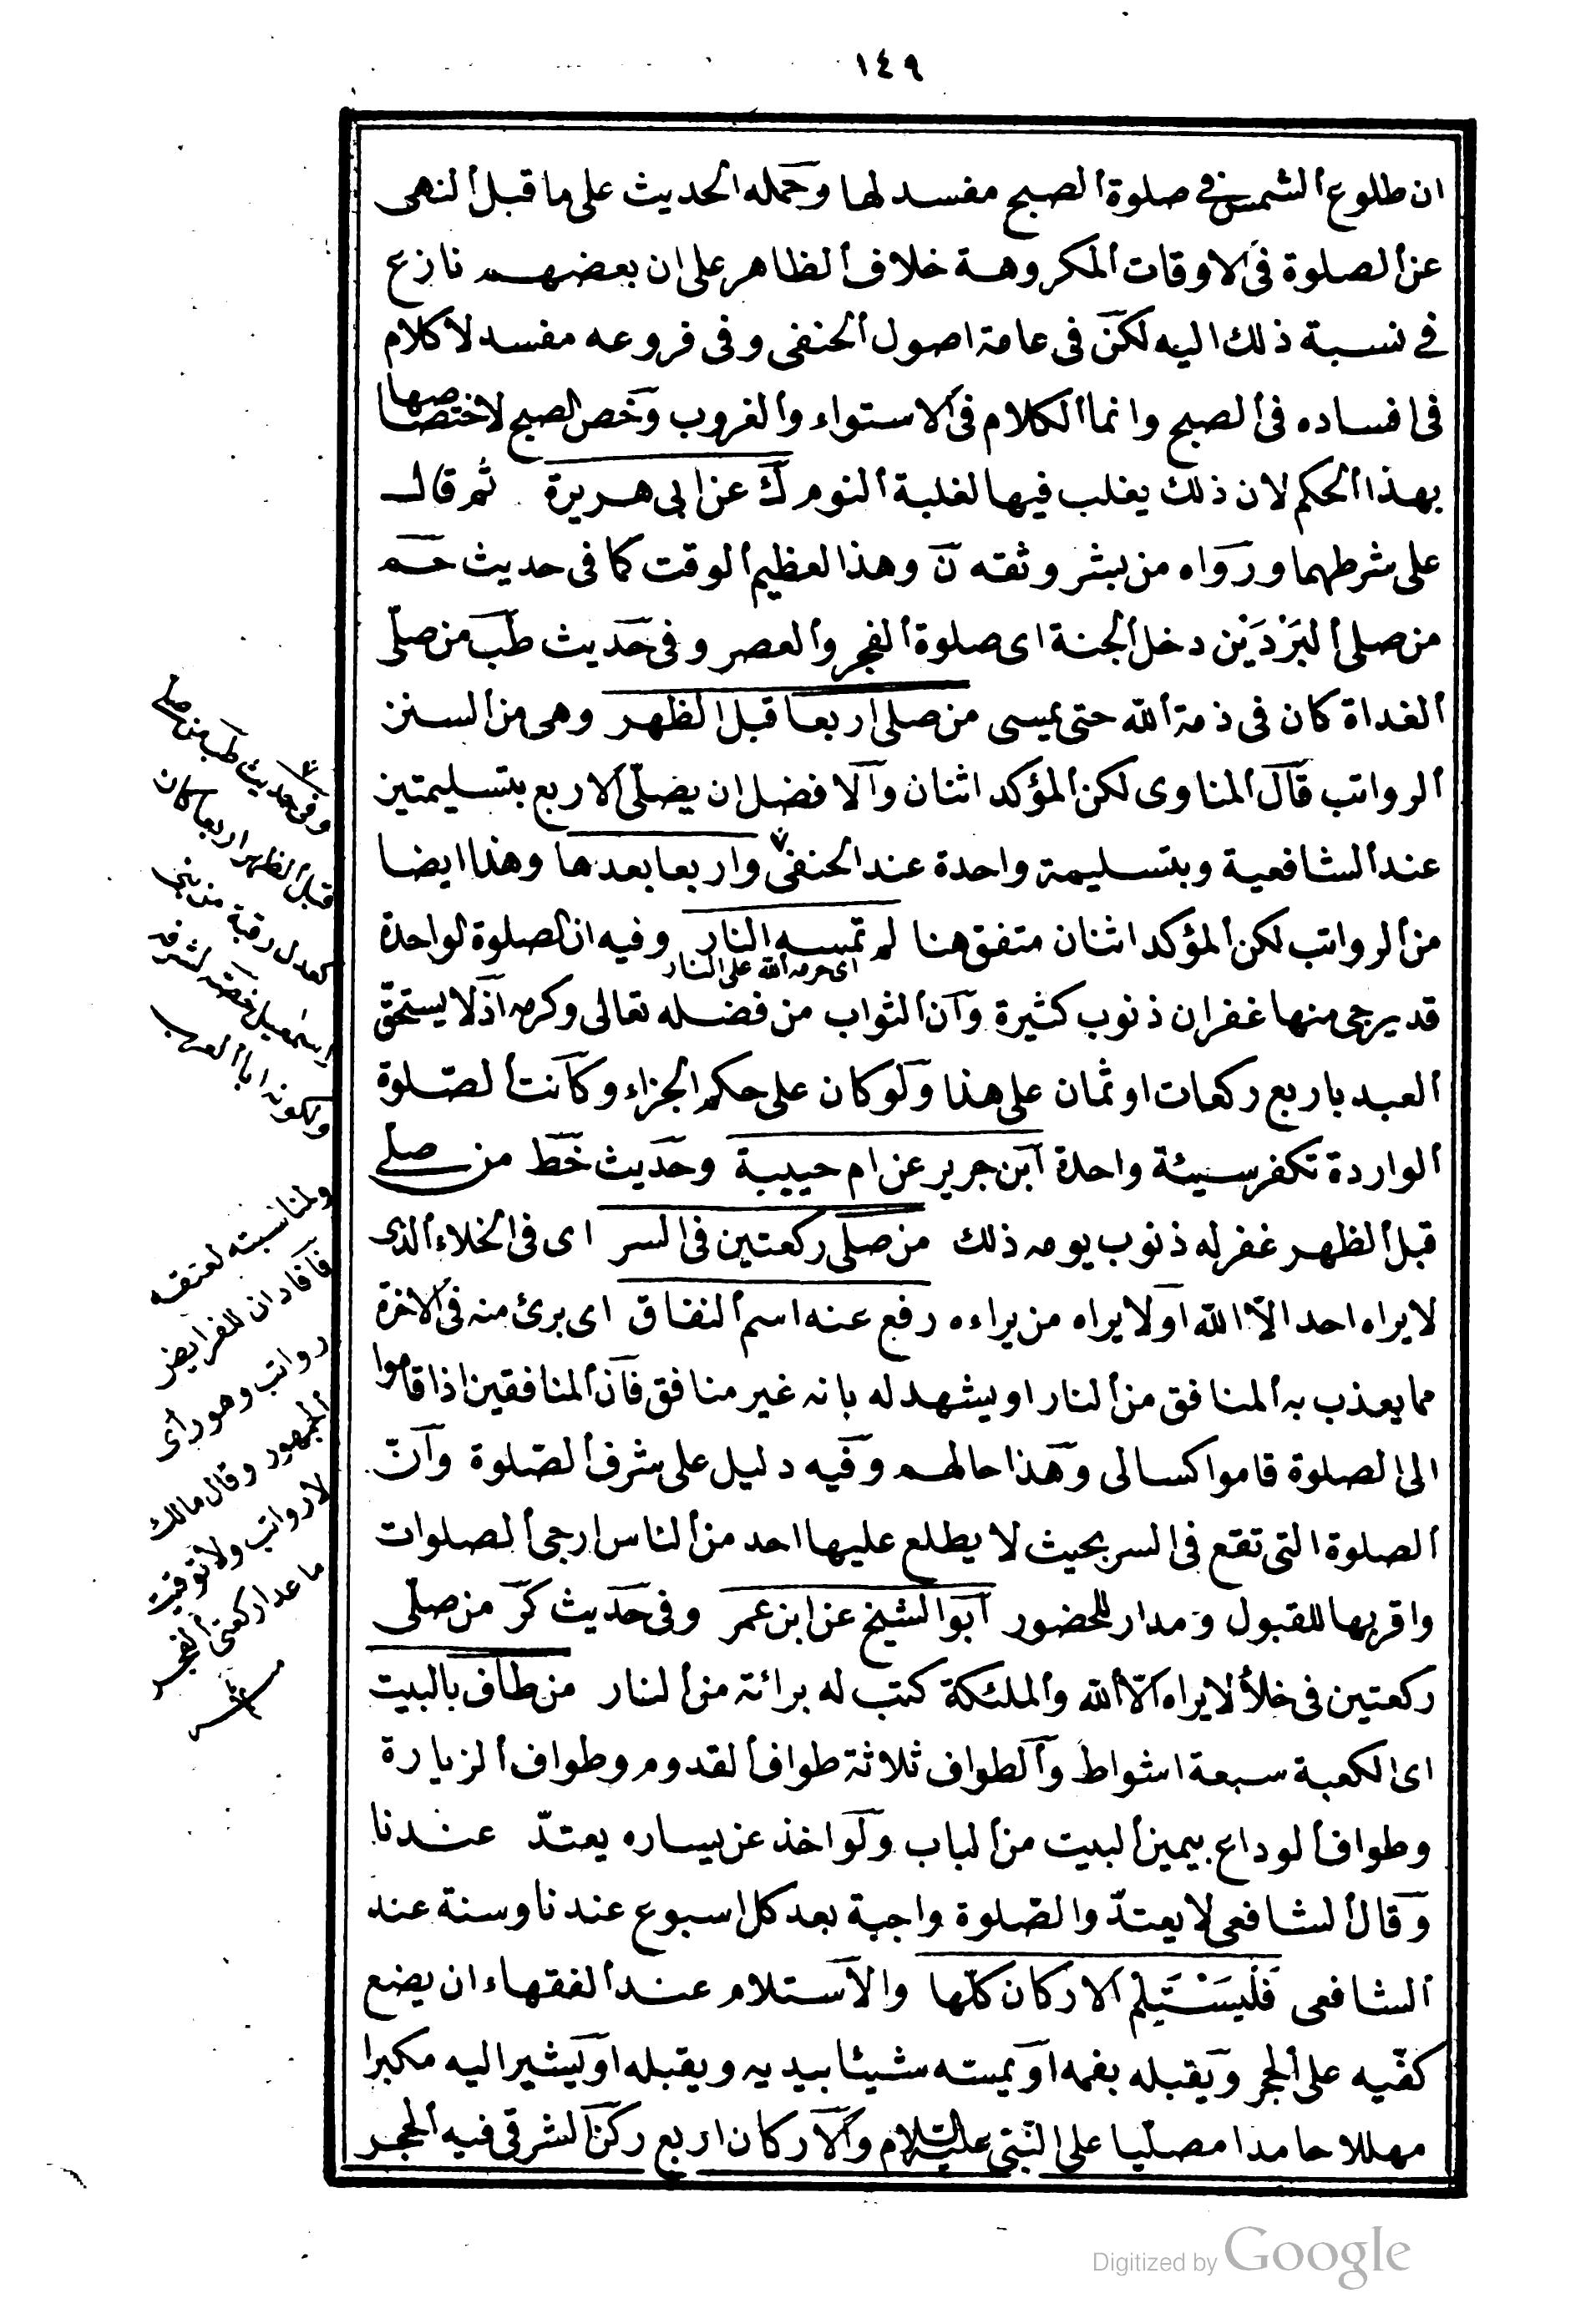 ١٤٩
ان طلوع الشمس في صلوة الصبح مفسد لها وحمله الحديث على ما قبل النهى
عن الصلوة في الاوقات المكروهة خلاف الظاهر على ان بعضهم نازع
في نسبة ذلك اليه لكن في عامة اصول الحنفى وفى فروعه مفسد لا كلام
فى افساده فى الصبح وانما الكلام فى الاستواء والغروب وخص الصبح لاختصاصها
بهذا الحكم لان ذلك يغلب فيها لغلبة النوم ك عن ابى هريرة ثم قال
على شرطهما ورواه من بشر وثقه ن وهذا لعظيم الوقت كما فى حديث حم
من صلى البَرْدَيْن دخل الجنة اى صلوة الفجر والعصر وفى حديث طب من صلّى
الغداة كان فى ذمة الله حتى يمسى من صلى اربعا قبل الظهر وهى من السنن
الرواتب قال المناوى لكن المؤكد اثنان والافضل ان يصلّى الاربع بتسليمتين
عند الشافعية وبتسليمة واحدة عند الحنفى واربعا بعدها وهذا ايضا
من الرواتب لكن المؤكد اثنان متفق هنا لم تمسه النار وفيه ان الصلوة لواحدة
اى حرمه الله على النار
قد يرجى منها غفران ذنوب كثيرة وان الثواب من فضله تعالى وكرمه اذ لا يستحقّ
العبد باربع ركعات او ثمان على هذا ولو كان على حكم الجزاء وكانت الصّلوة
الواردة تكفر سيئة واحدة ابن جرير عن ام حبيبة وحديث خط من صلّى
قبل الظهر غفر له ذنوب يومه ذلك من صلّى ركعتين فى السر اى فى الخلاء الذى
لا يراه احد الاّ الله او لا يراه من يراءه رفع عنه اسم النفاق اى برئ منه فى الاخرة
مما يعذب به المنافق من النار او يشهد له بانه غير منافق فان المنافقين اذا قاموا
الى الصلوة قاموا كسالى وهذا حالهم وفيه دليل على شرف الصّلوة وانّ
الصلوة التى تقع فى السر بحيث لا يطلع عليها احد من الناس ارجى الصلوات
واقربها للقبول ومدار للحضور ابو الشيخ عن ابن عمر وفى حديث كر من صلّى
ركعتين فى خلأ لا يراه الّا الله والملئكة كتب له برائة من النار من طاف بالبيت
اى الكعبة سبعة اشواط والطواف ثلاثة طواف القدوم وطواف الزيارة
وطواف الوداع بيمين البيت من الباب ولو اخذ عن يساره يعتدّ عندنا
وقال الشافعى لا يعتدّ والصّلوة واجبة بعد كل اسبوع عندنا وسنة عند
الشافعى فَلْيَسْتَلِم الاركان كلّها والاستلام عند الفقهاء ان يضع
كفّيه على الحجر ويقبله بفمه او يمسته شيئا بيديه ويقبله او يشير اليه مكبرا
مهللا حامدا مصلّيا على النّبى عليه السّلام والاركان اربع ركن الشرقى فيه الحجر
وفى حديث طب من صلى
قبل الظهر اربعا كان
كعدل رقبة من بنى
اسمعيل خصّه لشرفه
وبكونه ابا العرب
ولمناسبته لعتقه
فافاد ان للفرايض
رواتب وهو رأى
الجمهور وقال مالك
لا رواتب ولا توقيت
ما عدا ركعتى الفجر
Digitized by Google